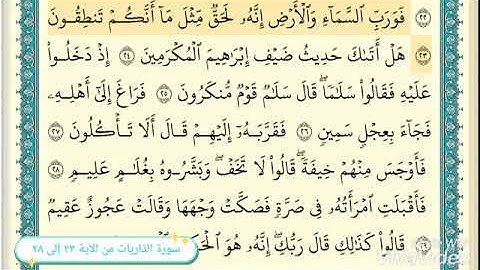 ٢٢ فَوَرَبِّ السَّمَآءِ وَالْأَرْضِ إِنَّهُۥ لَحَقٌّ مِّثْلَ مَآ أَنَّكُمْ تَنطِقُونَ
٢٣ هَلْ أَتَىٰكَ حَدِيثُ ضَيْفِ إِبْرَٰهِيمَ الْمُكْرَمِينَ ٢٤ إِذْ دَخَلُوا۟
عَلَيْهِ فَقَالُوا۟ سَلَٰمًا ۖ قَالَ سَلَٰمٌ قَوْمٌ مُّنكَرُونَ ٢٥ فَرَاغَ إِلَىٰٓ أَهْلِهِۦ
فَجَآءَ بِعِجْلٍ سَمِينٍ ٢٦ فَقَرَّبَهُۥٓ إِلَيْهِمْ قَالَ أَلَا تَأْكُلُونَ ٢٧
فَأَوْجَسَ مِنْهُمْ خِيفَةً ۖ قَالُوا۟ لَا تَخَفْ ۖ وَبَشَّرُوهُ بِغُلَٰمٍ عَلِيمٍ ٢٨
فَأَقْبَلَتِ امْرَأَتُهُۥ فِى صَرَّةٍ فَصَكَّتْ وَجْهَهَا وَقَالَتْ عَجُوزٌ عَقِيمٌ
قَالُوا۟ كَذَٰلِكِ قَالَ رَبُّكِ ۖ إِنَّهُۥ هُوَ
سورة الذاريات من الآية ٢٣ إلى ٢٨